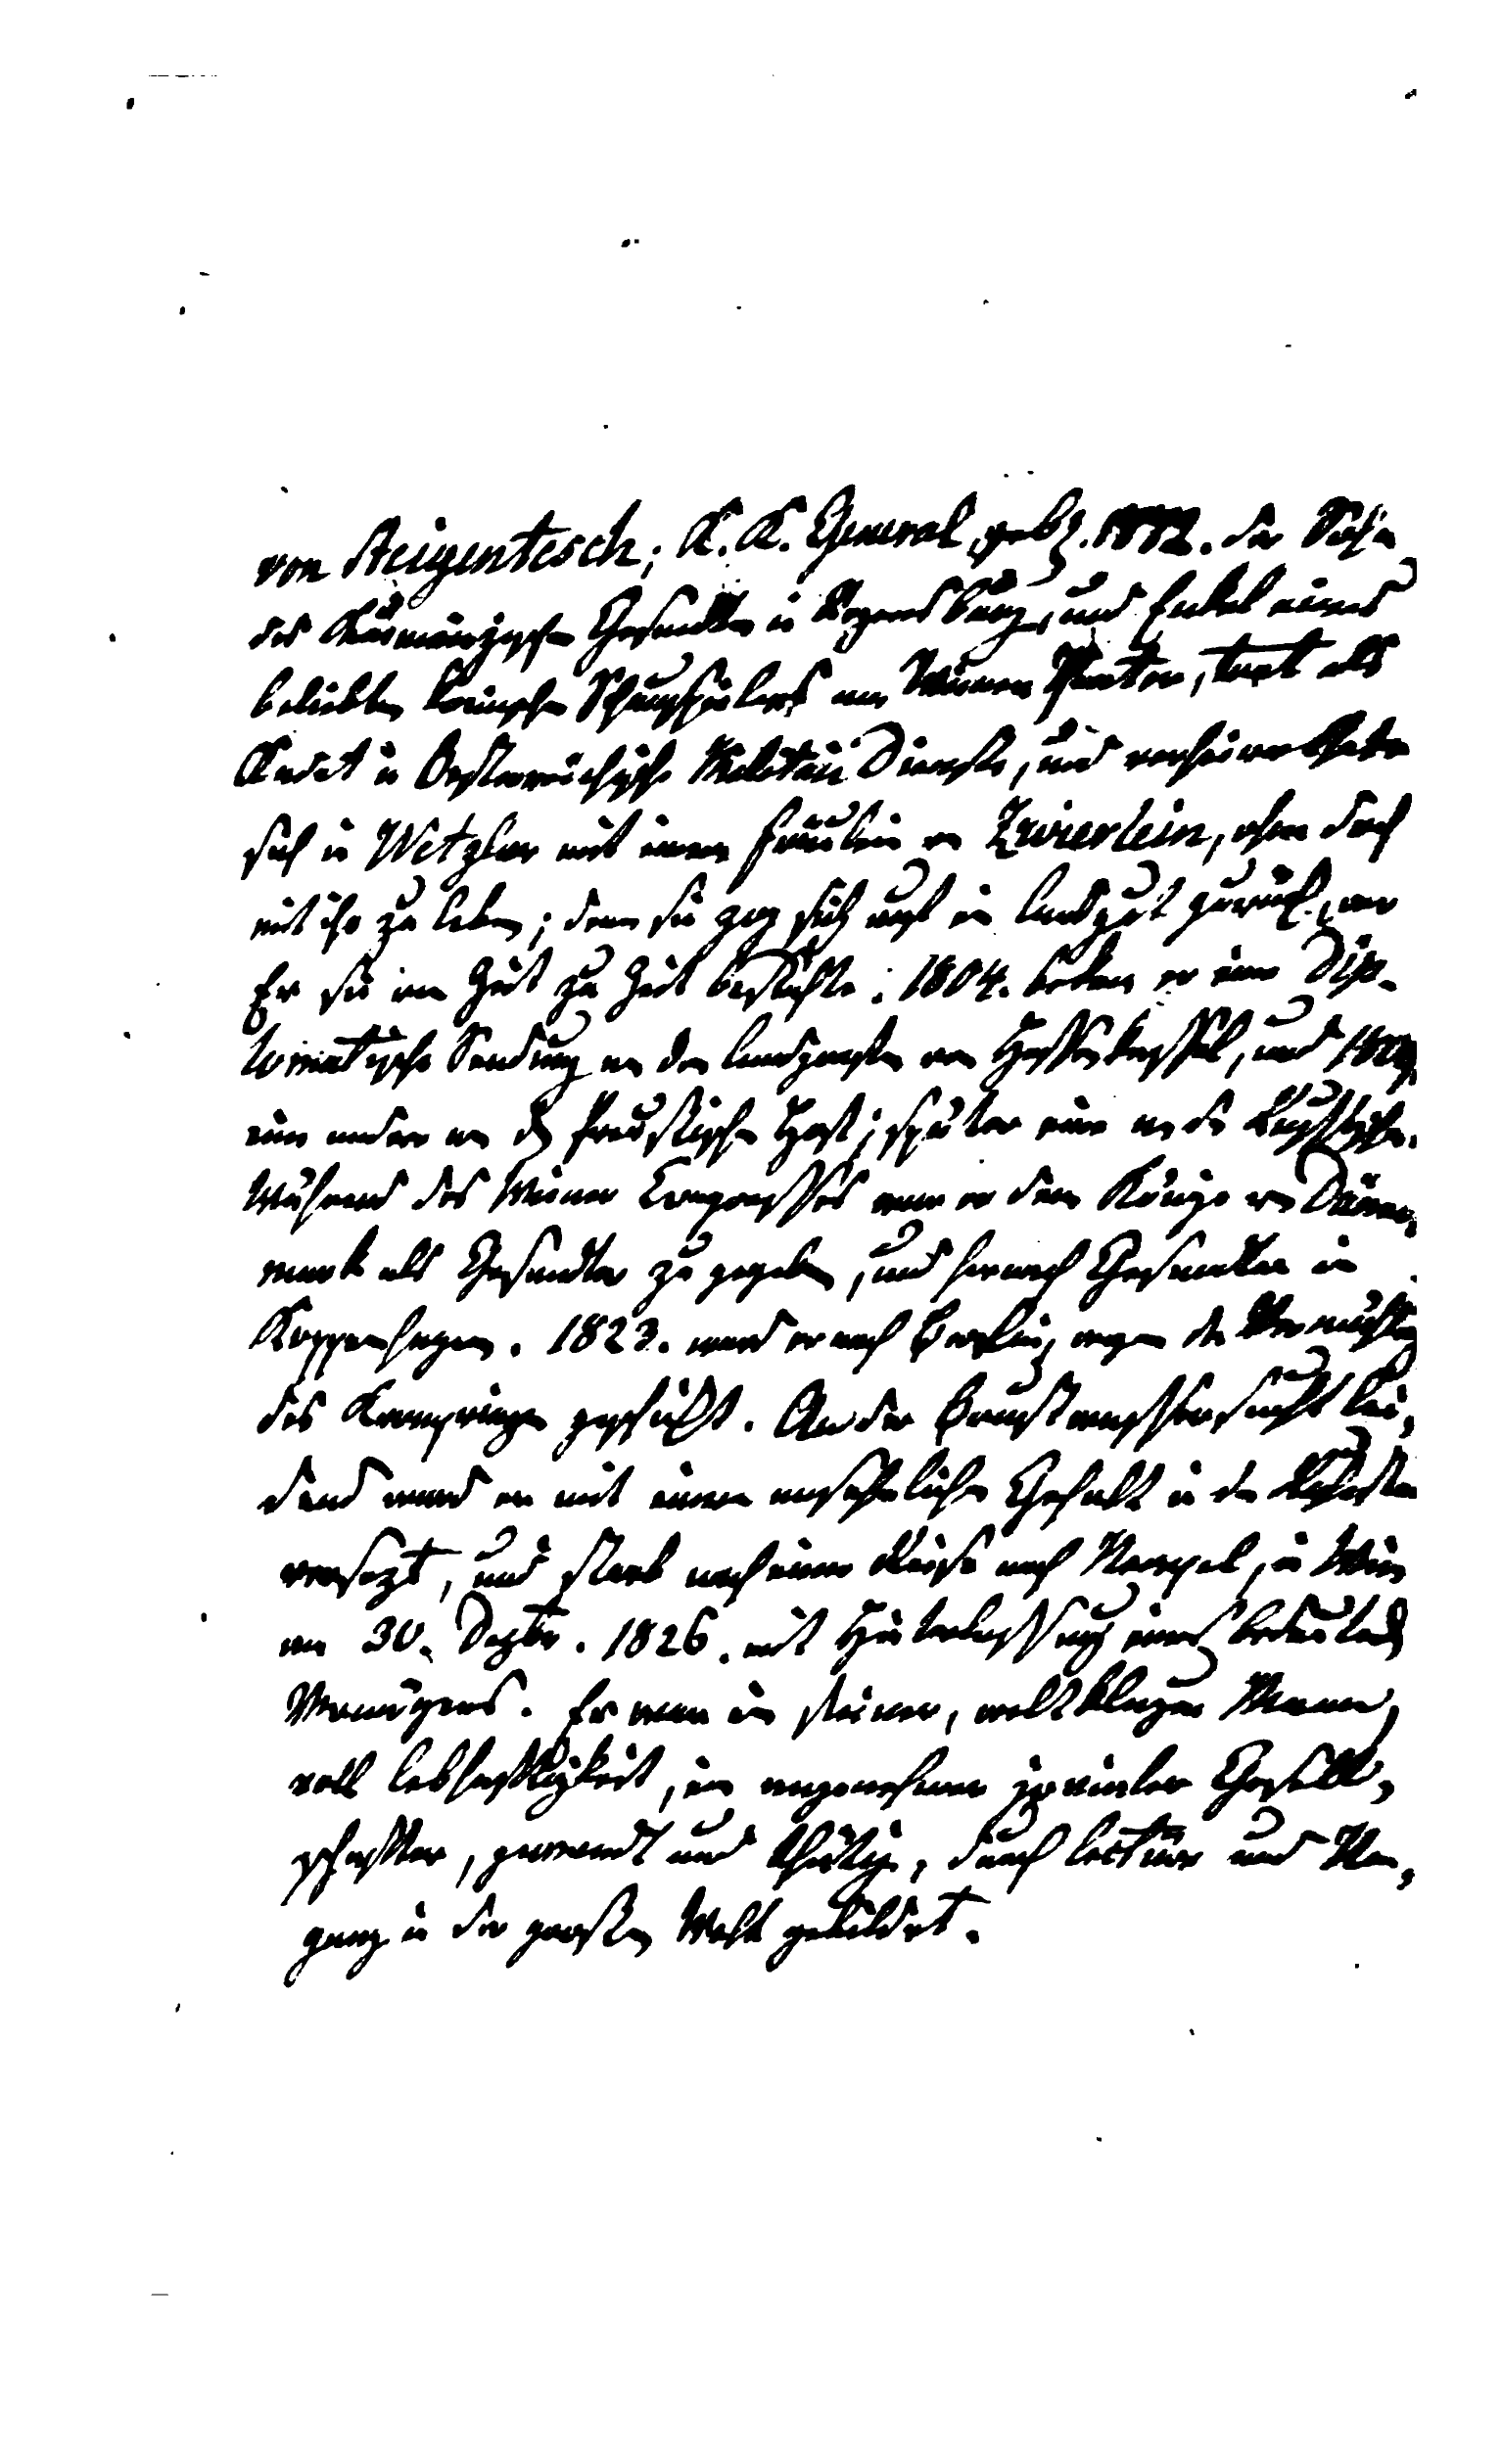 von Steigentesch; K. K. General, geb. der Sohn
des Kurmainzischen Gesandten in Regensburg, und Enkel eines
beliebten komischen Schauspielers am Wiener Theater, trat als
Kadet in Oesterreichische Militair Dienste, und verheirathete
sich in Wetzlar mit einem Fräulein von Zwierlein, ohne doch
mit ihr zu leben; denn sie zog sich auf ein Landgut zurück, wo
Er sie von Zeit zu Zeit besuchte. 1804. bekam er eine Dip-
lomatische Sendung an den Landgrafen von Hessenkassel, und
eine andere an den Preussischen Hof; später eine an den Russischen.
Während des Wiener Congresses war er dem Könige von Däne-
mark als Gesandter zugegeben, und hernach Gesandter in
Koppenhagen. 1823. ward er nach Berlin, wegen der Vermählung
des Kronprinzen geschickt. An der Brustwassersucht lei-
dend ward er mit einem ansehnlichen Gehalt in den Ruhestand
versezt, und starb nach einer Reise nach Neapel, in Wien
am 30. Dezbr. 1826. mit Hinterlassung eines bedeutenden
Vermögens. Er war ein feiner, weltkluger Mann,
voll Lebhaftigkeit, ein angenehmer jovialer Gesell-
schafter, gewandt und thätig, durch Lectüre und Um-
gang in der großen Welt gebildet.